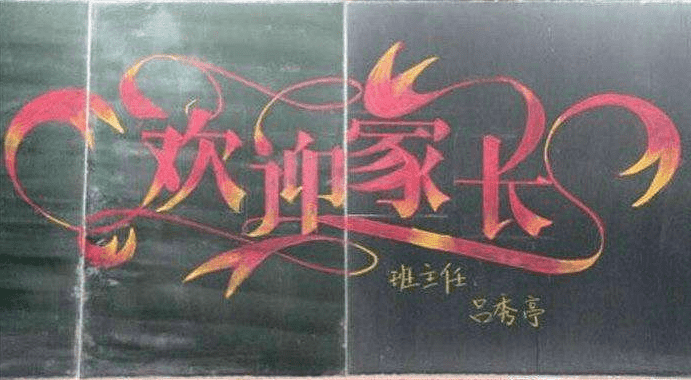 欢迎家长
班主任:
吕秀亭